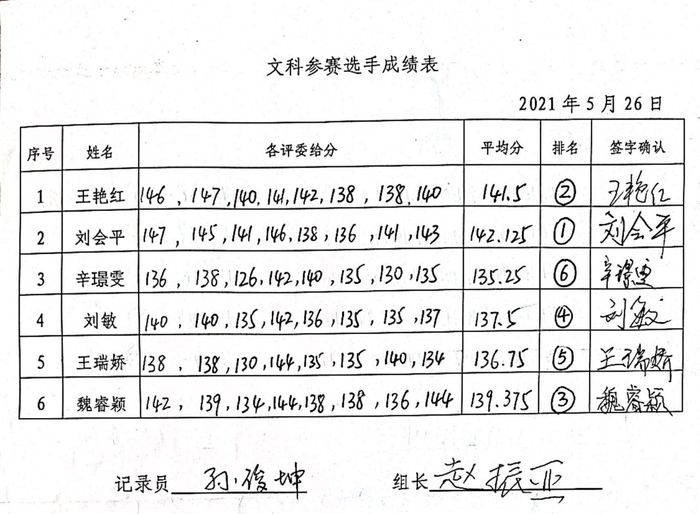 文科参赛选手成绩表
2021 年 5 月 26 日
序号 姓名 各评委给分 平均分 排名 签字确认
1 王艳红 146，147，140，141，142，138，138，140 141.5 ② 王艳红
2 刘会平 147，145，141，146，138，136，141，143 142.125 ① 刘会平
3 辛璟雯 136，138，126，142，140，135，130，135 135.25 ⑥ 辛璟雯
4 刘敏 140，140，135，142，136，135，135，137 137.5 ④ 刘敏
5 王瑞娇 138，138，130，144，135，135，140，134 136.75 ⑤ 王瑞娇
6 魏睿颖 142，139，134，144，138，138，136，144 139.375 ③ 魏睿颖
记录员 孙俊坤 组长 赵振亚